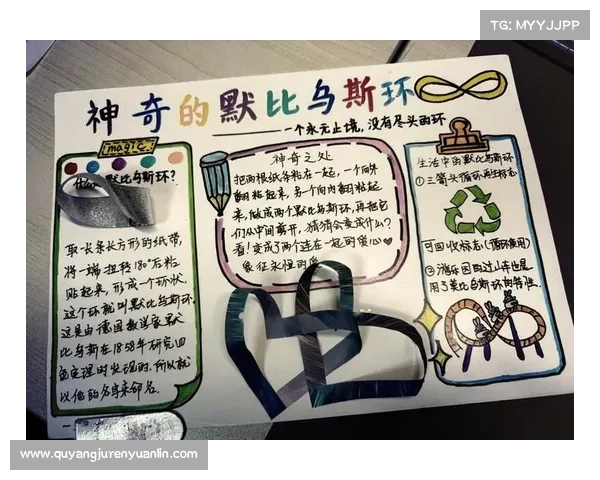 TG: MYYJJPP
神奇的默比乌斯环
一个永无止境,没有尽头的环
magic
默比乌斯环?
取一长条长方形的纸带,
将一端扭转180°后粘
贴起来,形成一个环状.
这个环就叫默比乌斯环.
这是由德国数学家默
比乌斯在1858年研究四
色定理时发现的,所以就
以他的名字来命名.
神奇之处
把两根纸条粘在一起,一个向外
翻粘起来,另一个向内翻粘起
来,做成两个默比乌斯环,再把它
们从中间剪开,猜猜会变成什么?
看!变成了两个连在一起的爱心♥
象征永恒的爱
生活中的默比乌斯环
①三箭头循环再生标志
可回收标志(循环使用)
②游乐园的过山车也是
用了莫比乌斯环的特性.
www.quyangjurenyuanlin.com